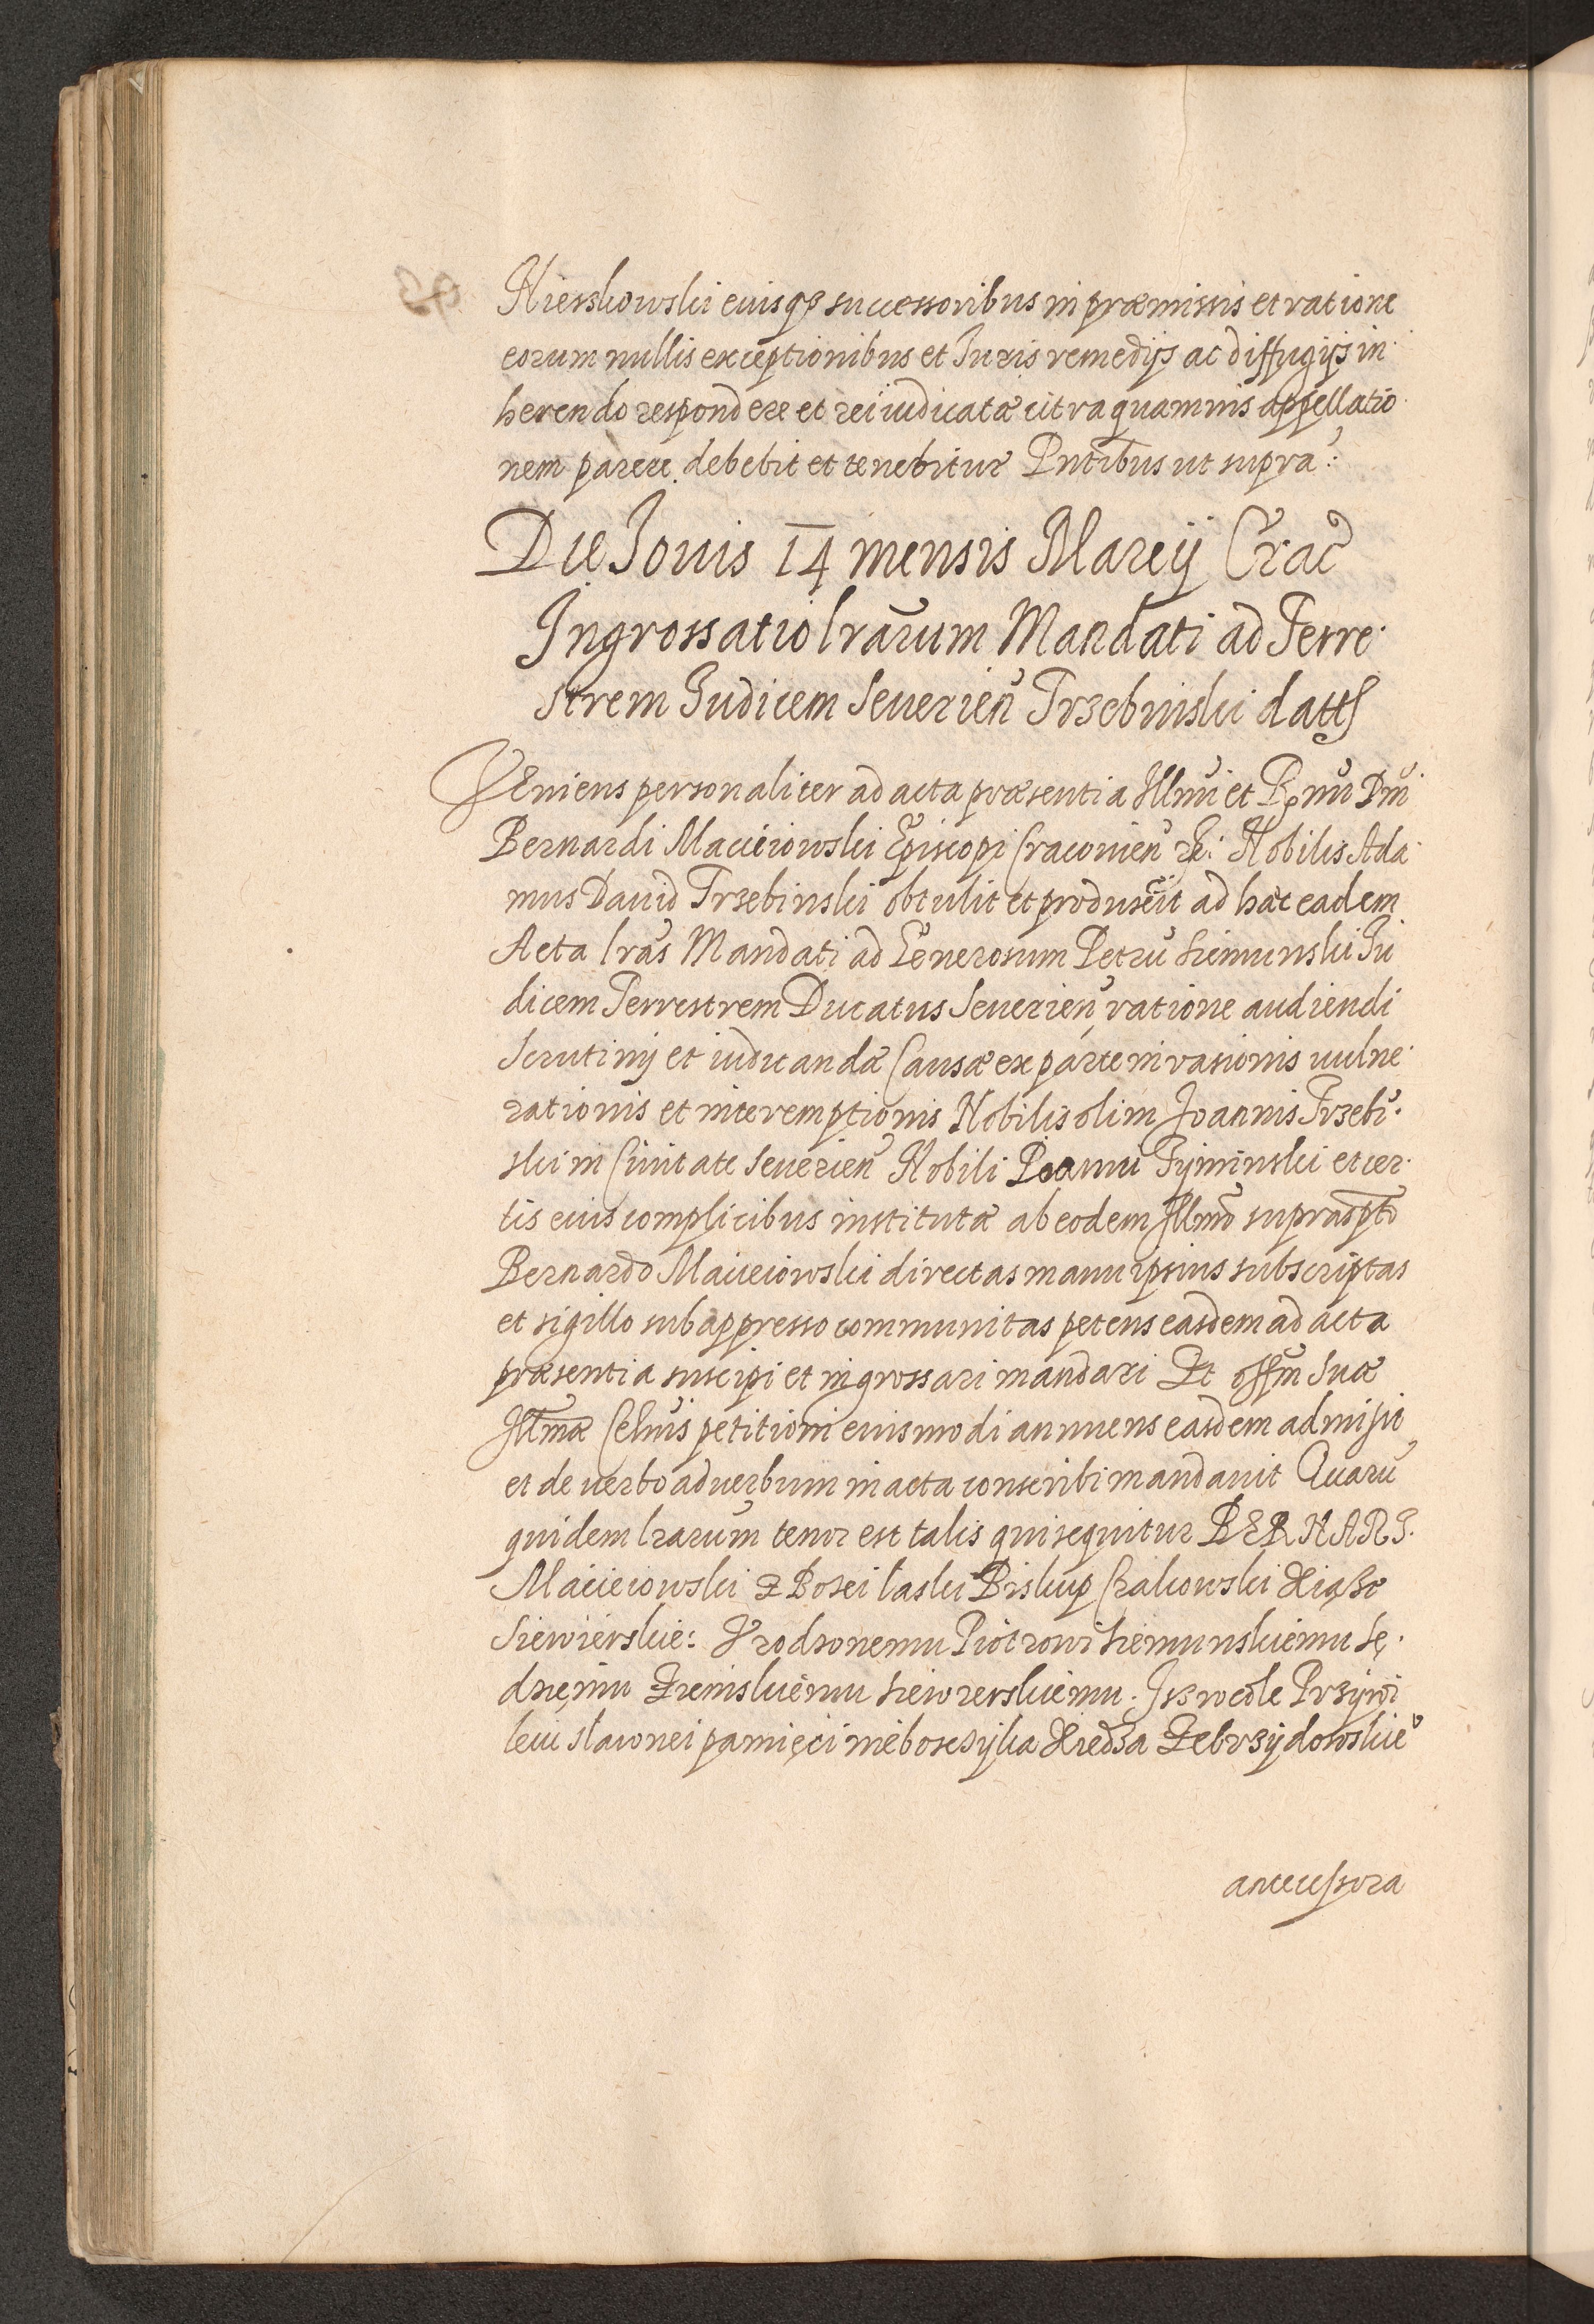 Mierskowski euisqȝ successoribus in præmissis et ratione
eorum nullis exceptionibus et Juris remedijs ac diffugijs in
herendo respondere et rei iudicatæ citra quamuis appellatio
nem parere debebit et tenebitur Pntibus ut supra:
Die Jouis 14 mensis Marcij Crac
Ingrossatio lrarum Mandati ad Terre
strem Judicem Seuerien Trzebinski datt
Veniens personaliter ad acta præsentia Illmi et Rmi Dni
Bernardi Macieiowski Episcopi Cracouien &: Nobilis Ada
mus Dauid Trzebinski obtulit et produxit ad hæc eadem
Acta lras Mandati ad Generosum Petru Siemunski Ju
dicem Terrestrem Ducatus Seuerien ratione audiendi
Scrutinij et iudicandæ Causæ ex parte inuasionis uulne
rationis et interemptionis Nobilis olim Joannis Trzebi
ski in Ciuitate Seuerien Nobili Joanni Tyminski et cer
tis eius complicibus institutæ ab eodem Illmo supradpto
Bernardo Macieiowski directas manu ipsius subscriptas
et sigillo subappresso communitas petens easdem ad acta
præsentia suscipi et ingrossari mandari Et offm Suæ
Illmæ Celnis petitioni euismodi annuens easdem admisit
et de uerbo ad uerbum in acta conscribi mandauit Quaru
quidem lrarum tenor est talis qui sequitur BERNART
Macieiowski z Bozei laski Biskup Krakowski Xiąże
Siewierskie: Vrodzonemu Piotrowi Siemunskiemu Sę
dziemu Ziemskiemu Siewierskiemu. Isz wedle Przywi
leiu slawnei pamięci nieboszczyka Xiedza Zebrzydowskieo
antecessora